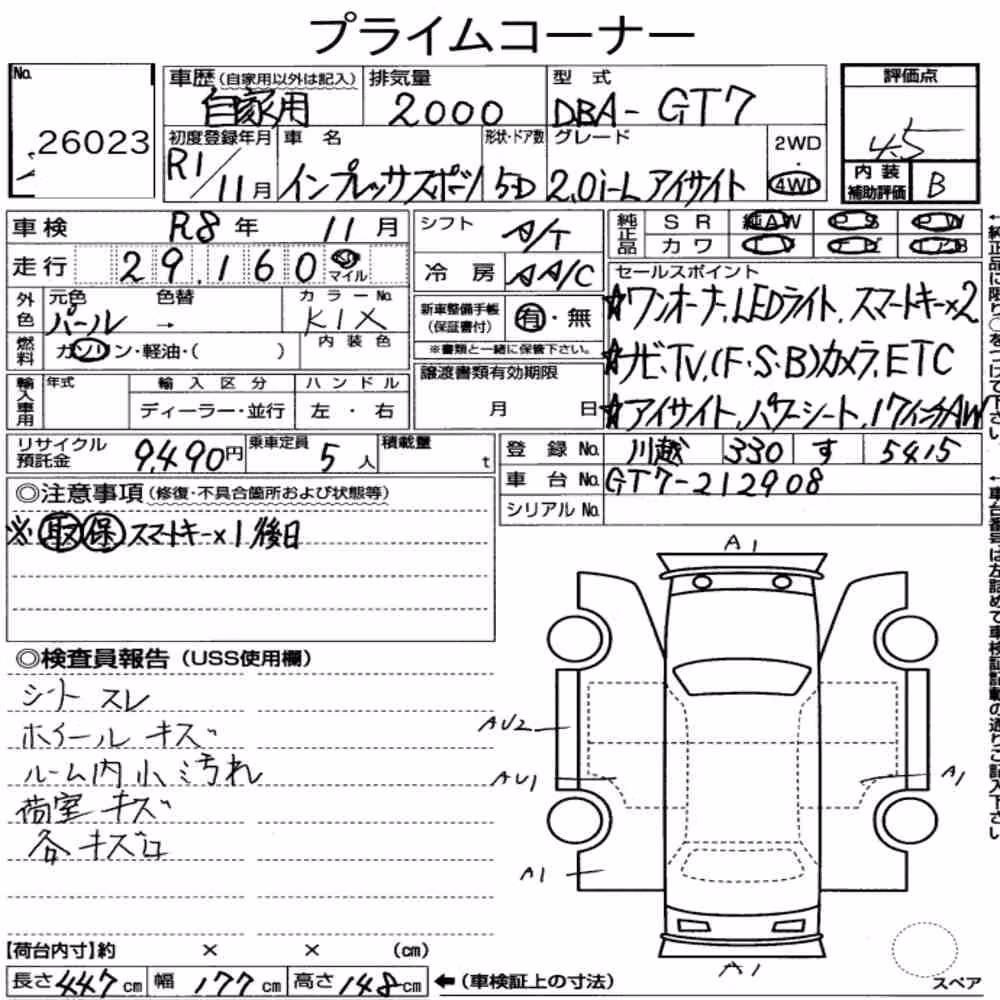 プライムコーナー
No. 26023
車歴(自家用以外は記入) 自家用
排気量 2000
型式 DBA-GT7
評価点 4.5
初度登録年月 R1/11月
車名 インプレッサスポーツ
形状・ドア数 5D
グレード 2.0i-L アイサイト
2WD・4WD
内装補助評価 B
車検 R8年 11月
シフト A/T
純正品 SR 純AW PS PW
カワ
走行 29,160 マイル
冷房 AA/C
外色 元色 パール 色替 →
カラーNo. K1X
内装色
新車整備手帳(保証書付) 有・無
※書類と一緒に保管下さい。
燃料 ガソリン・軽油・( )
譲渡書類有効期限 月 日
セールスポイント
☆ワンオーナー、LEDライト、スマートキー×2
☆ナビ・TV、(F・S・B)カメラ、ETC
☆アイサイト、パワーシート、17インチAW
輸入車用 年式 輸入区分 ハンドル
ディーラー・並行 左・右
リサイクル預託金 9,490円
乗車定員 5人
積載量 t
登録No. 川越 330 す 5415
車台No. GT7-212908
シリアルNo.
◎注意事項(修復・不具合箇所および状態等)
※取保 スマートキー×1後日
◎検査員報告(USS使用欄)
シート スレ
ホイール キズ
ルーム内小汚れ
荷室 キズ
各キズ
A1
AU2
AU1
A1
A1
A1
【荷台内寸】約 × × (cm)
長さ 447cm 幅 177cm 高さ 148cm ←(車検証上の寸法)
スペア
←純正品に限り○をつけて下さい。
←車台番号は左詰めで車検証記載の通りご記入下さい。